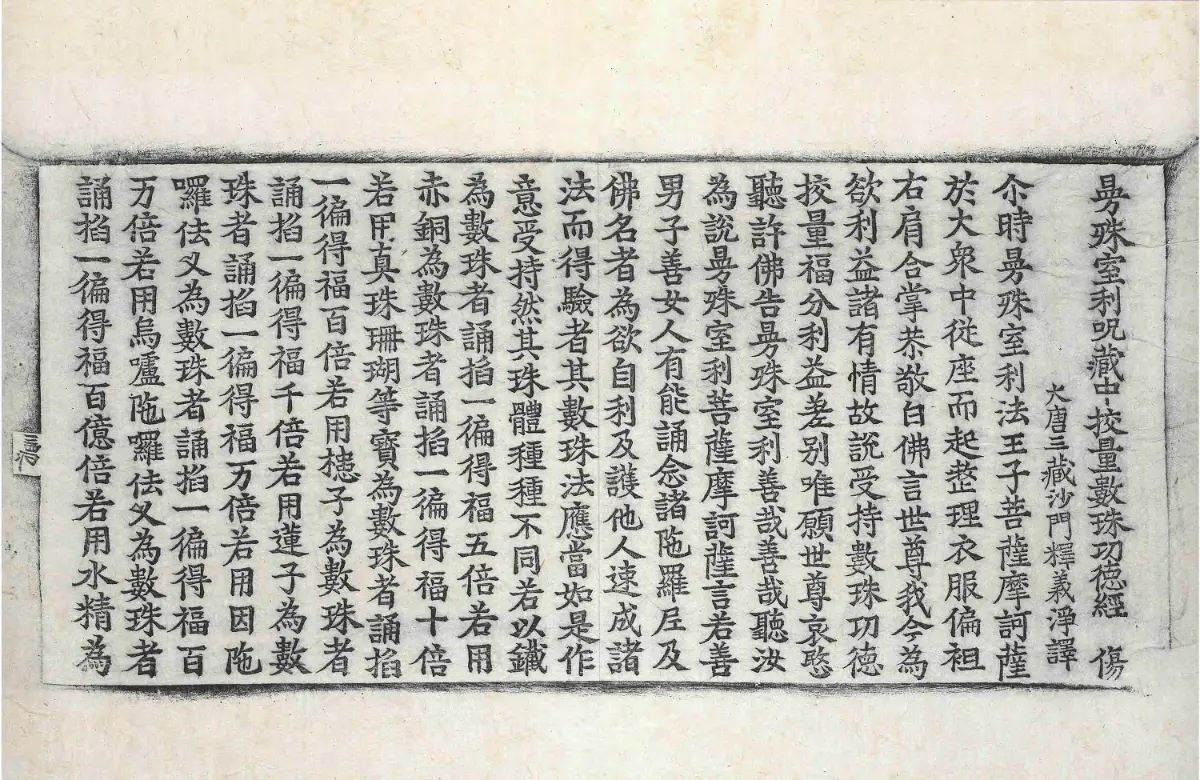 曼殊室利呪藏中挍量數珠功徳經　傷
大唐三藏沙門釋義淨譯
尒時曼殊室利法王子菩薩摩訶薩
於大衆中從座而起整理衣服偏袒
右肩合掌恭敬白佛言世尊我今為
欲利益諸有情故說受持數珠功徳
挍量福分利益差别唯願世尊哀愍
聽許佛告曼殊室利善哉善哉聽汝
為說曼殊室利菩薩摩訶薩言若善
男子善女人有能誦念諸陁羅尼及
佛名者為欲自利及護他人速成諸
法而得驗者其數珠法應當如是作
意受持然其珠體種種不同若以鐵
為數珠者誦掐一徧得福五倍若用
赤銅為數珠者誦掐一徧得福十倍
若用真珠珊瑚等寳為數珠者誦掐
一徧得福百倍若用槵子為數珠者
誦掐一徧得福千倍若用蓮子為數
珠者誦掐一徧得福万倍若用因陁
囉佉叉為數珠者誦掐一徧得福百
万倍若用烏嚧陁囉佉叉為數珠者
誦掐一徧得福百億倍若用水精為